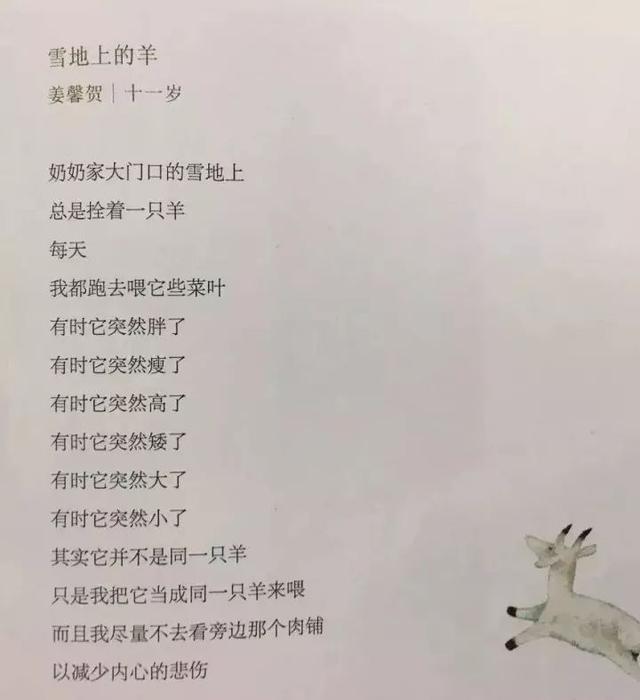 雪地上的羊
姜馨贺｜十一岁
奶奶家大门口的雪地上
总是拴着一只羊
每天
我都跑去喂它些菜叶
有时它突然胖了
有时它突然瘦了
有时它突然高了
有时它突然矮了
有时它突然大了
有时它突然小了
其实它并不是同一只羊
只是我把它当成同一只羊来喂
而且我尽量不去看旁边那个肉铺
以减少内心的悲伤